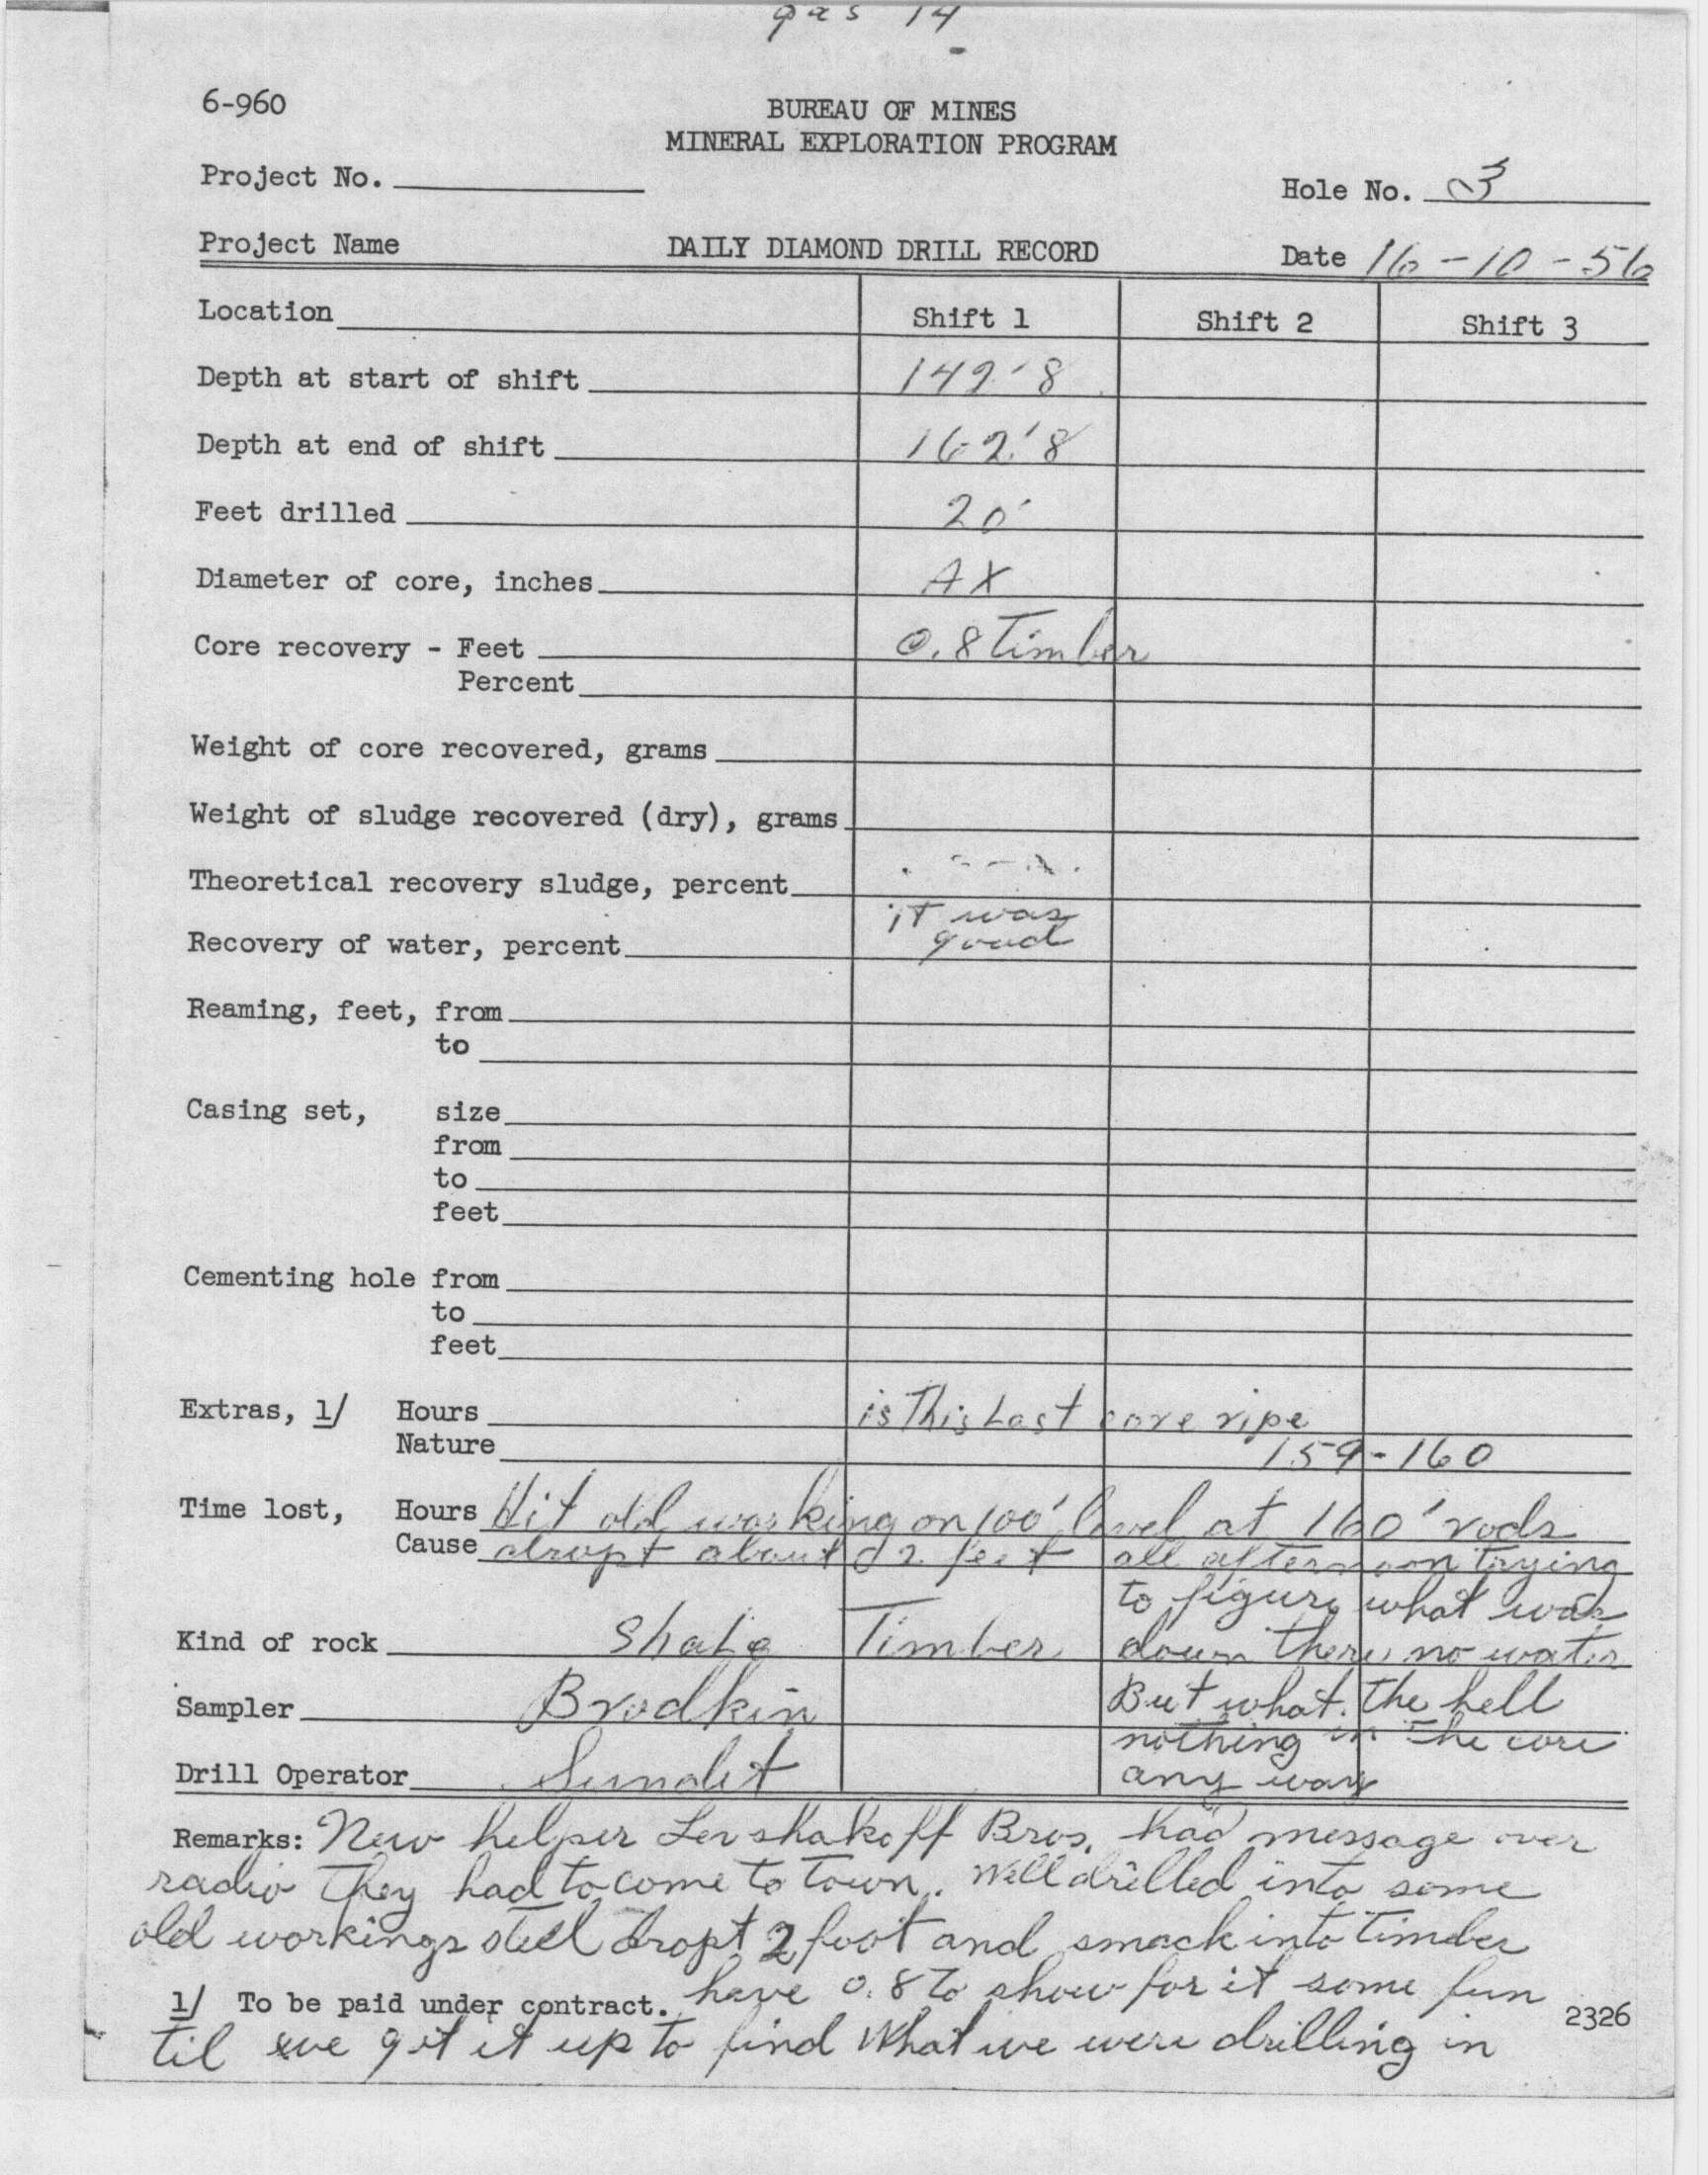 gas 14
6-960
BUREAU OF MINES
MINERAL EXPLORATION PROGRAM
Project No.
Hole No. 3
Project Name DAILY DIAMOND DRILL RECORD Date 16-10-56
Location Shift 1 Shift 2 Shift 3
Depth at start of shift 142'8
Depth at end of shift 162'8
Feet drilled 20'
Diameter of core, inches AX
Core recovery - Feet 0.8 Timber
Percent
Weight of core recovered, grams
Weight of sludge recovered (dry), grams
Theoretical recovery sludge, percent
it was
Recovery of water, percent good
Reaming, feet, from
to
Casing set, size
from
to
feet
Cementing hole from
to
feet
Extras, 1/ Hours is This Last core ripe
Nature 159-160
Time lost, Hours Hit old working on 100' level at 160' rods
Cause dropt about 2 feet all afternoon trying
to figure what was
Kind of rock Shale Timber down there no water
Sampler Brodkin But what the hell
nothing in the core
Drill Operator any way
Remarks: New helper Levshakoff Bros. had message over
radio They had to come to Town. Well drilled into some
old workings steel dropt 2 foot and smack into Timber
1/ To be paid under contract. have 0.8 to show for it some fun
2326
til we got it up to find what we were drilling in